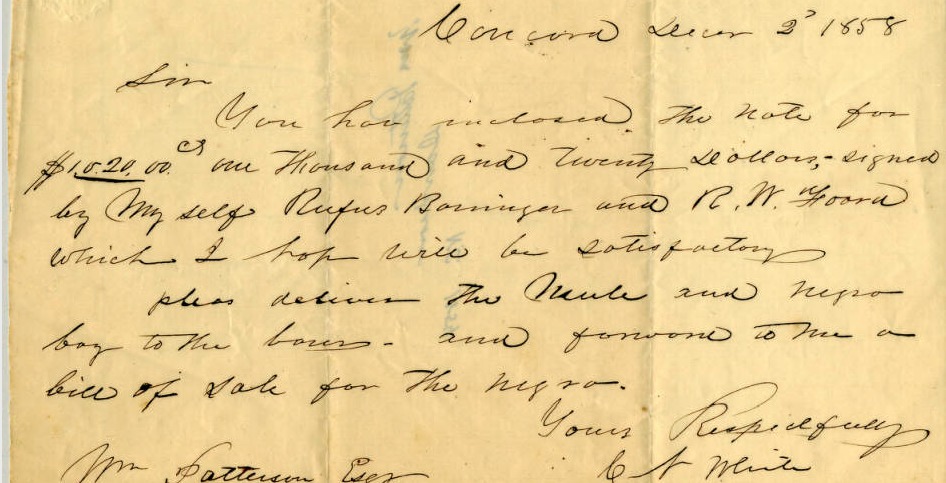 Concord Decr 2d 1858
Sir
You hav inclosed the Note for
$1,0.20.00 cs one Thousand and Twenty Dollars,- signed
by My self Rufus Barringer and R. W. Foard
which I hop will be satisfactory
pleas deliver the Mule and Negro
boy to the barer - and forward to me a
bill of Sale for the negro.
Yours Respectfully
Wm Patterson Esqr C N White